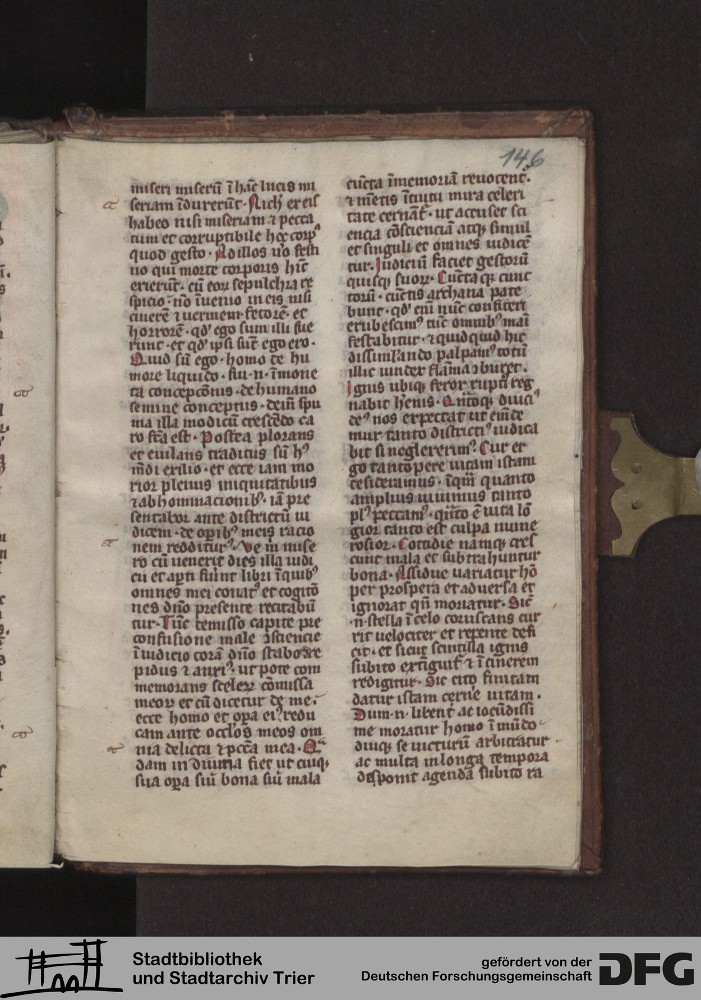 146
miseri miserū ī hāc lucis mi
seriam īdurerūt. Nich̄ ex eis
habeo nisi miseriam ⁊ pecca
tum et corruptibile hoc corpꝰ
quod gesto. Ad illos v̄o festi
no qui morte corporis hīc
exierūt. cū eoꝝ sepulchra re
spicio. nō īuenio in eis nisi
cinerē ⁊ vermem fetorē. et
horrorē. qđ ego sum illi fue
runt. et qđ ip̄i sūt ego ero.
Quid sū ego. homo de hu
more liquido. fui .n. ī mone
ta concepcōnis. de humano
semine conceptus. deīn spu
ma illa modicū crescēdo ca
ro fc̄a est. Postea plorans
et eiulans traditus sū hꝰ
mūdi exilio. et ecce iam mo
rior plenus iniquitatibus
⁊ abhominacionibꝫ. iā pre
sentabor ante districtū iu
dicem. de oꝑibꝫ meis racio
nem redditurꝰ. Ve m̄ mise
ro cū venerit dies illa iudi
cii et aꝑti fiūnt libri ī quibꝫ
omnes mei conatꝰ et cogitō
nes dn̄o presente recitabū
tur. Tūc demisso capite pre
confusione male ꝯsciencie
ī iudicio corā dn̄o stabo tre
pidus ⁊ anxiꝰ. ut pote com
memorans sceleꝝ cōmissa
meoꝝ et cū dicetur de me.
ecce homo et oꝑa eiꝰ. redu
cam ante occlos meos om
nia delicta ⁊ pcc̄a mea. Q̄
dam .n. diuina fiet ut cuiqꝫ
sua oꝑa siū bona siū mala
cūcta ī memoriā reuocent̄.
⁊ mētis ītuitu mira celeri
tate cernāt̄. ut accuset sci
encia cōscienciā atqꝫ simul
et singuli et omnes iudicē
tur. Iudiciū faciet gestorū
quisqꝫ suoꝝ. Cūcta qꝫ cunc
torū. cūctis archana pate
bunt. qđ eīm nūc confiteri
erubescimꝰ tūc omnibꝫ mai
festabitur. ⁊ quidquid hic
dissimulando palpamꝰ totū
illic vindex flama ꝯburet.
Ignis ubiqꝫ ferox rupt̄ reg
nabit hēnis. Quātoqꝫ diuciꝰ
deꝰ nos expectat ut emēde
mur tanto districtiꝰ iudica
bit si neglexerimꝰ. Cur er
go tantopere vitam istam
desideramus. ī qua quanto
amplius viuimus tanto
plꝰ peccamꝰ. quāto ē vita lō
gior tanto est culpa nume
rosior. Cottidie namqꝫ cres
cunt mala et subtrahuntur
bona. Assidue variatur hō
per prospera et aduersa et
ignorat qn̄ moriatur. Sic̄
.n. stella ī celo coruscans cur
rit velociter et repente defi
cit. et sicut scintilla ignis
subito extiguit̄ ⁊ ī cinerem
redigitur. Sic cito finitam
datur istam cerne vitam.
Dum .n. libent̄ ac iocūdissi
me moratur homo ī mūdo
diucqꝫ se victurū arbitratur
ac multa in longa tempora
disponit agenda subito ra
Stadtbibliothek
und Stadtarchiv Trier
gefördert von der
Deutschen Forschungsgemeinschaft
DFG